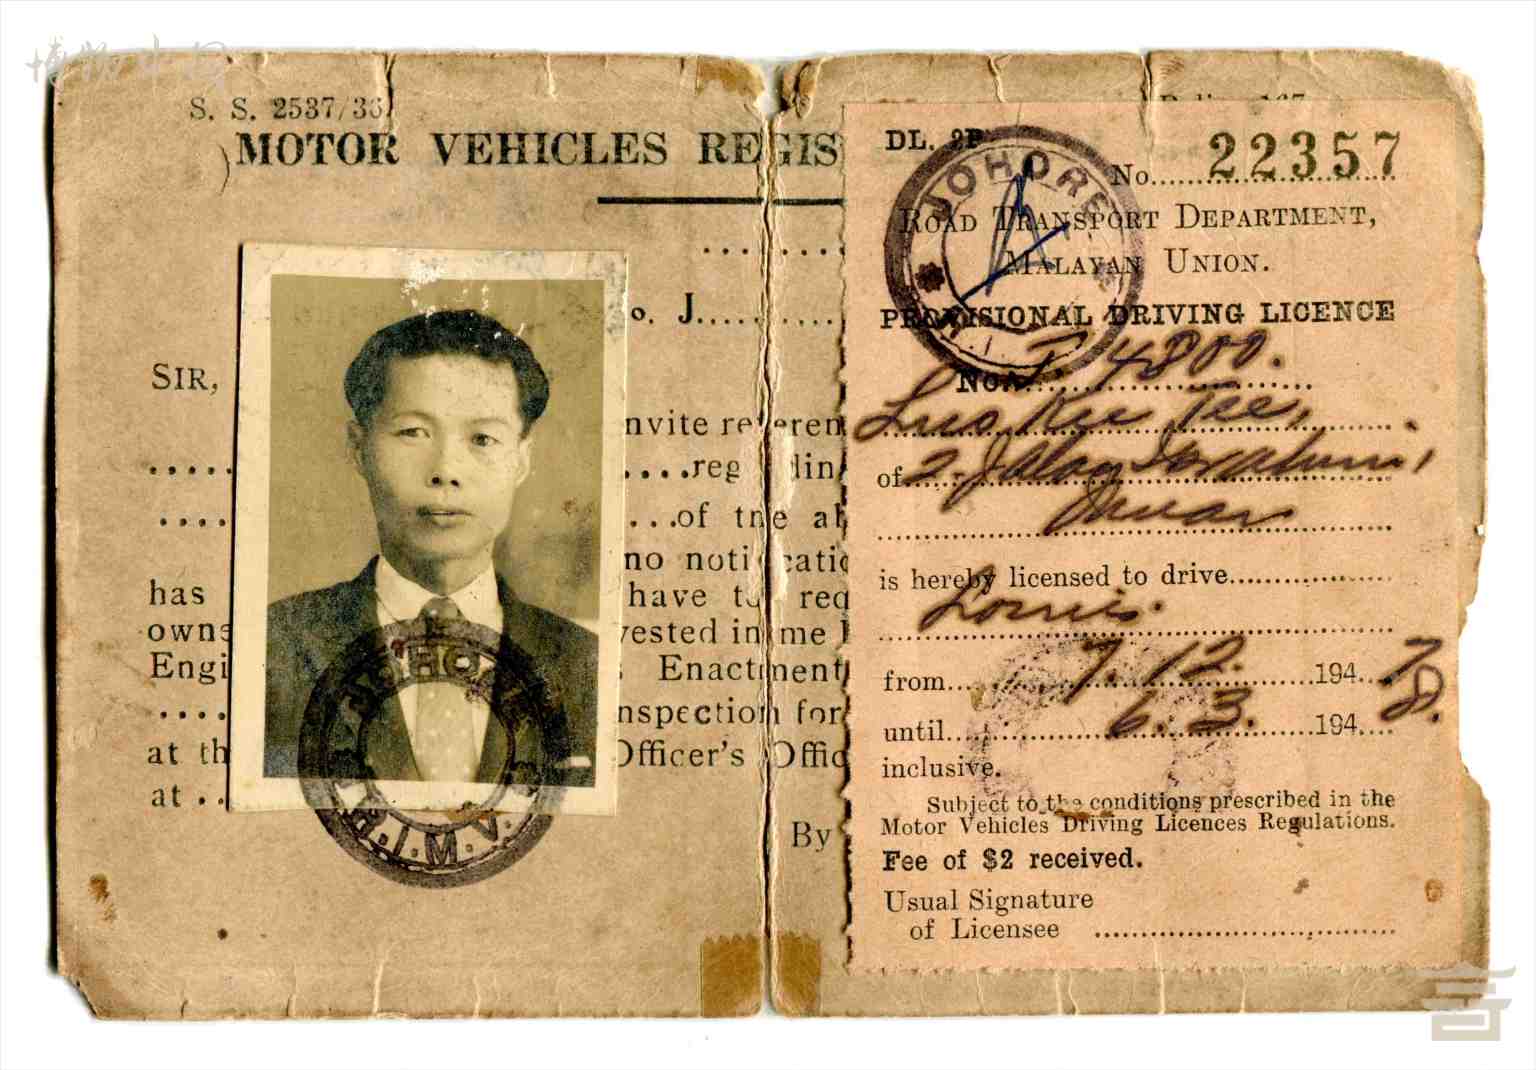 博物中国
S. S. 2537/36
MOTOR VEHICLES REGIS
o. J..........
SIR,
nvite referen
....reg din
...of the ab
no notification
has have to req
owne vested in me
Engi Enactment
nspection for
at th Officer's Offic
at ..
By
JOHORE
R.I.M.V.
DL. 2P
No. 22357
JOHORE
ROAD TRANSPORT DEPARTMENT,
MALAYAN UNION.
PROVISIONAL DRIVING LICENCE
No. J 4800.
Luo Kee Tee,
of 2 Jalan Ibrahim,
Muar
is hereby licensed to drive
Lorries.
from 7.12. 1947
until 6.3. 1948.
inclusive.
Subject to the conditions prescribed in the
Motor Vehicles Driving Licences Regulations.
Fee of $2 received.
Usual Signature
of Licensee